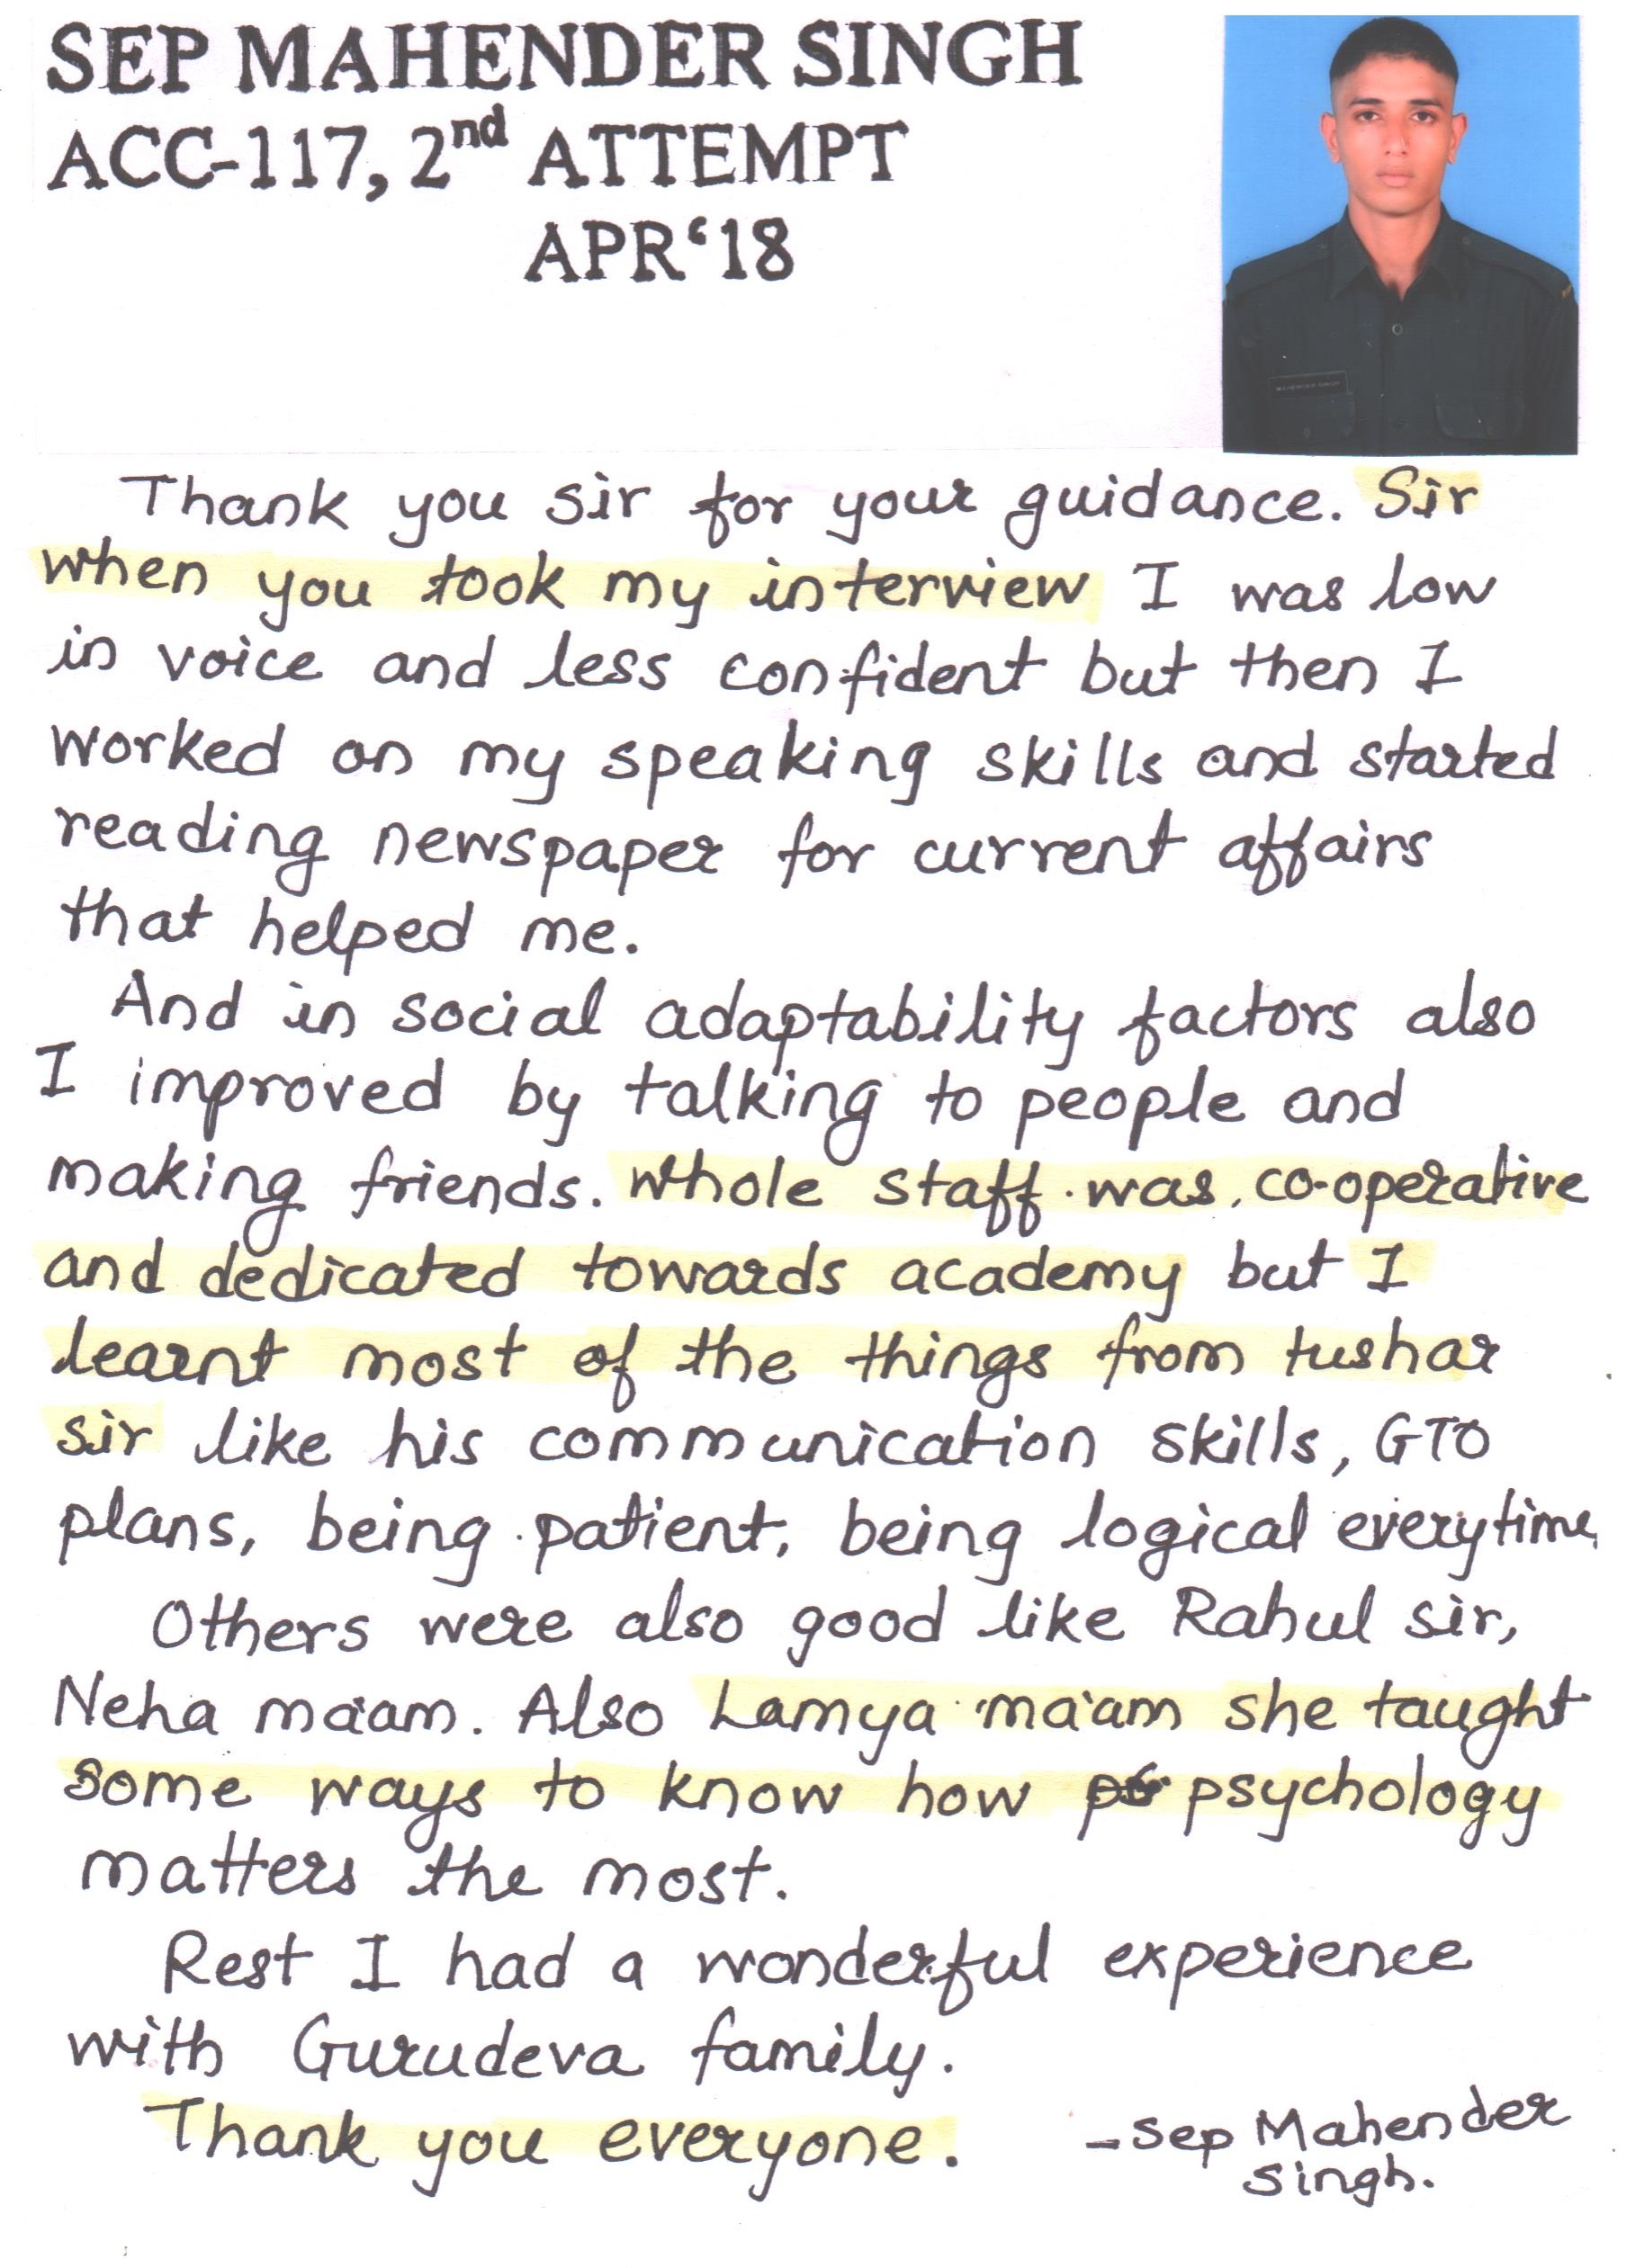 SEP MAHENDER SINGH
ACC-117, 2nd ATTEMPT
APR‘18
Thank you sir for your guidance. Sir
when you took my interview I was low
in voice and less confident but then I
worked on my speaking skills and started
reading newspaper for current affairs
that helped me.
And in social adaptability factors also
I improved by talking to people and
making friends. Whole staff was co-operative
and dedicated towards academy but I
learnt most of the things from tushar
sir like his communication skills, GTO
plans, being patient, being logical everytime,
Others were also good like Rahul sir,
Neha ma'am. Also Lamya ma'am she taught
some ways to know how psychology
matters the most.
Rest I had a wonderful experience
with Gurudeva family.
Thank you everyone.
-Sep Mahender
Singh.